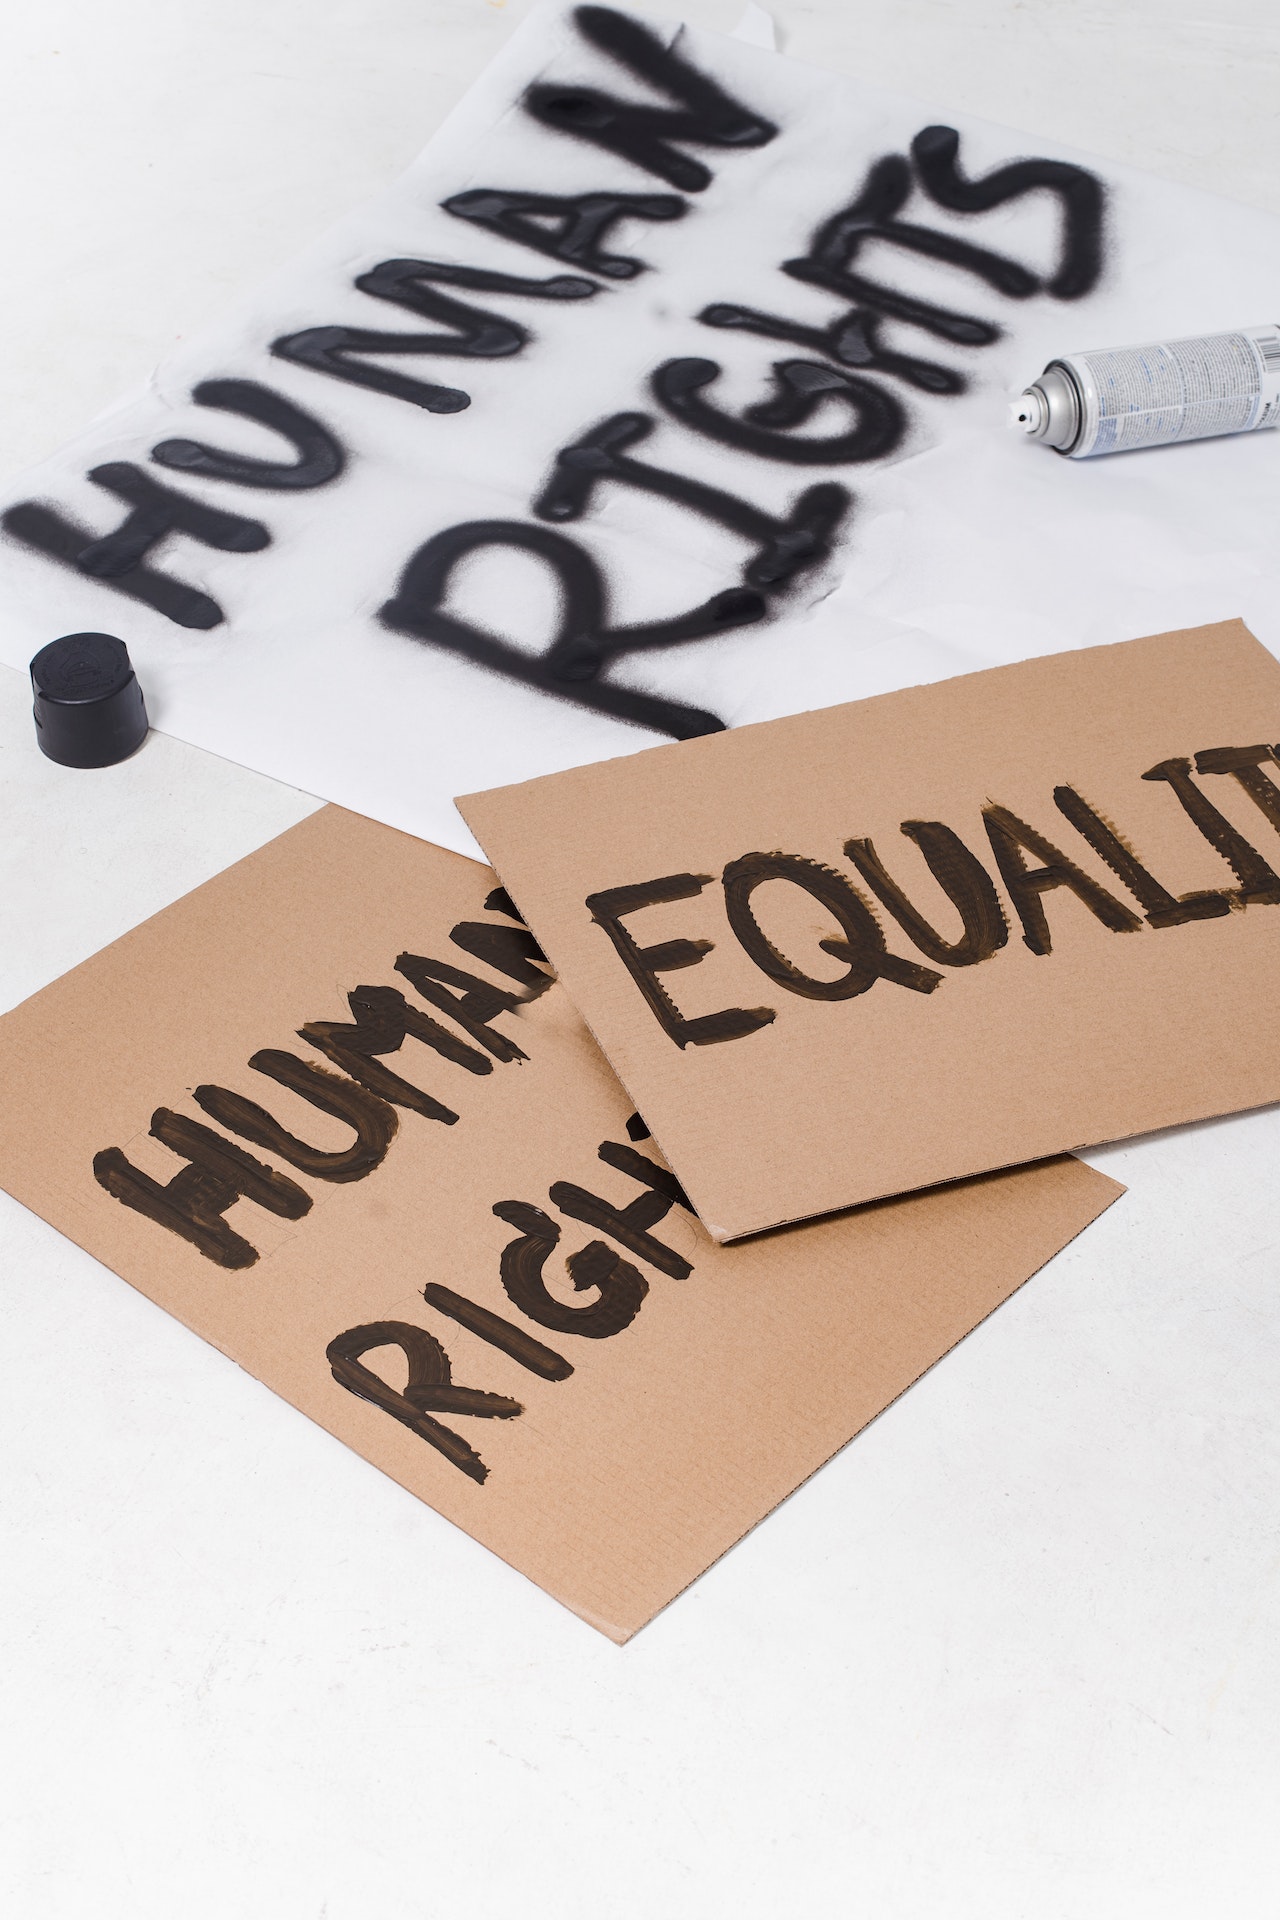 HUMAN
RIGHTS
EQUALIT
HUMAN
RIGH